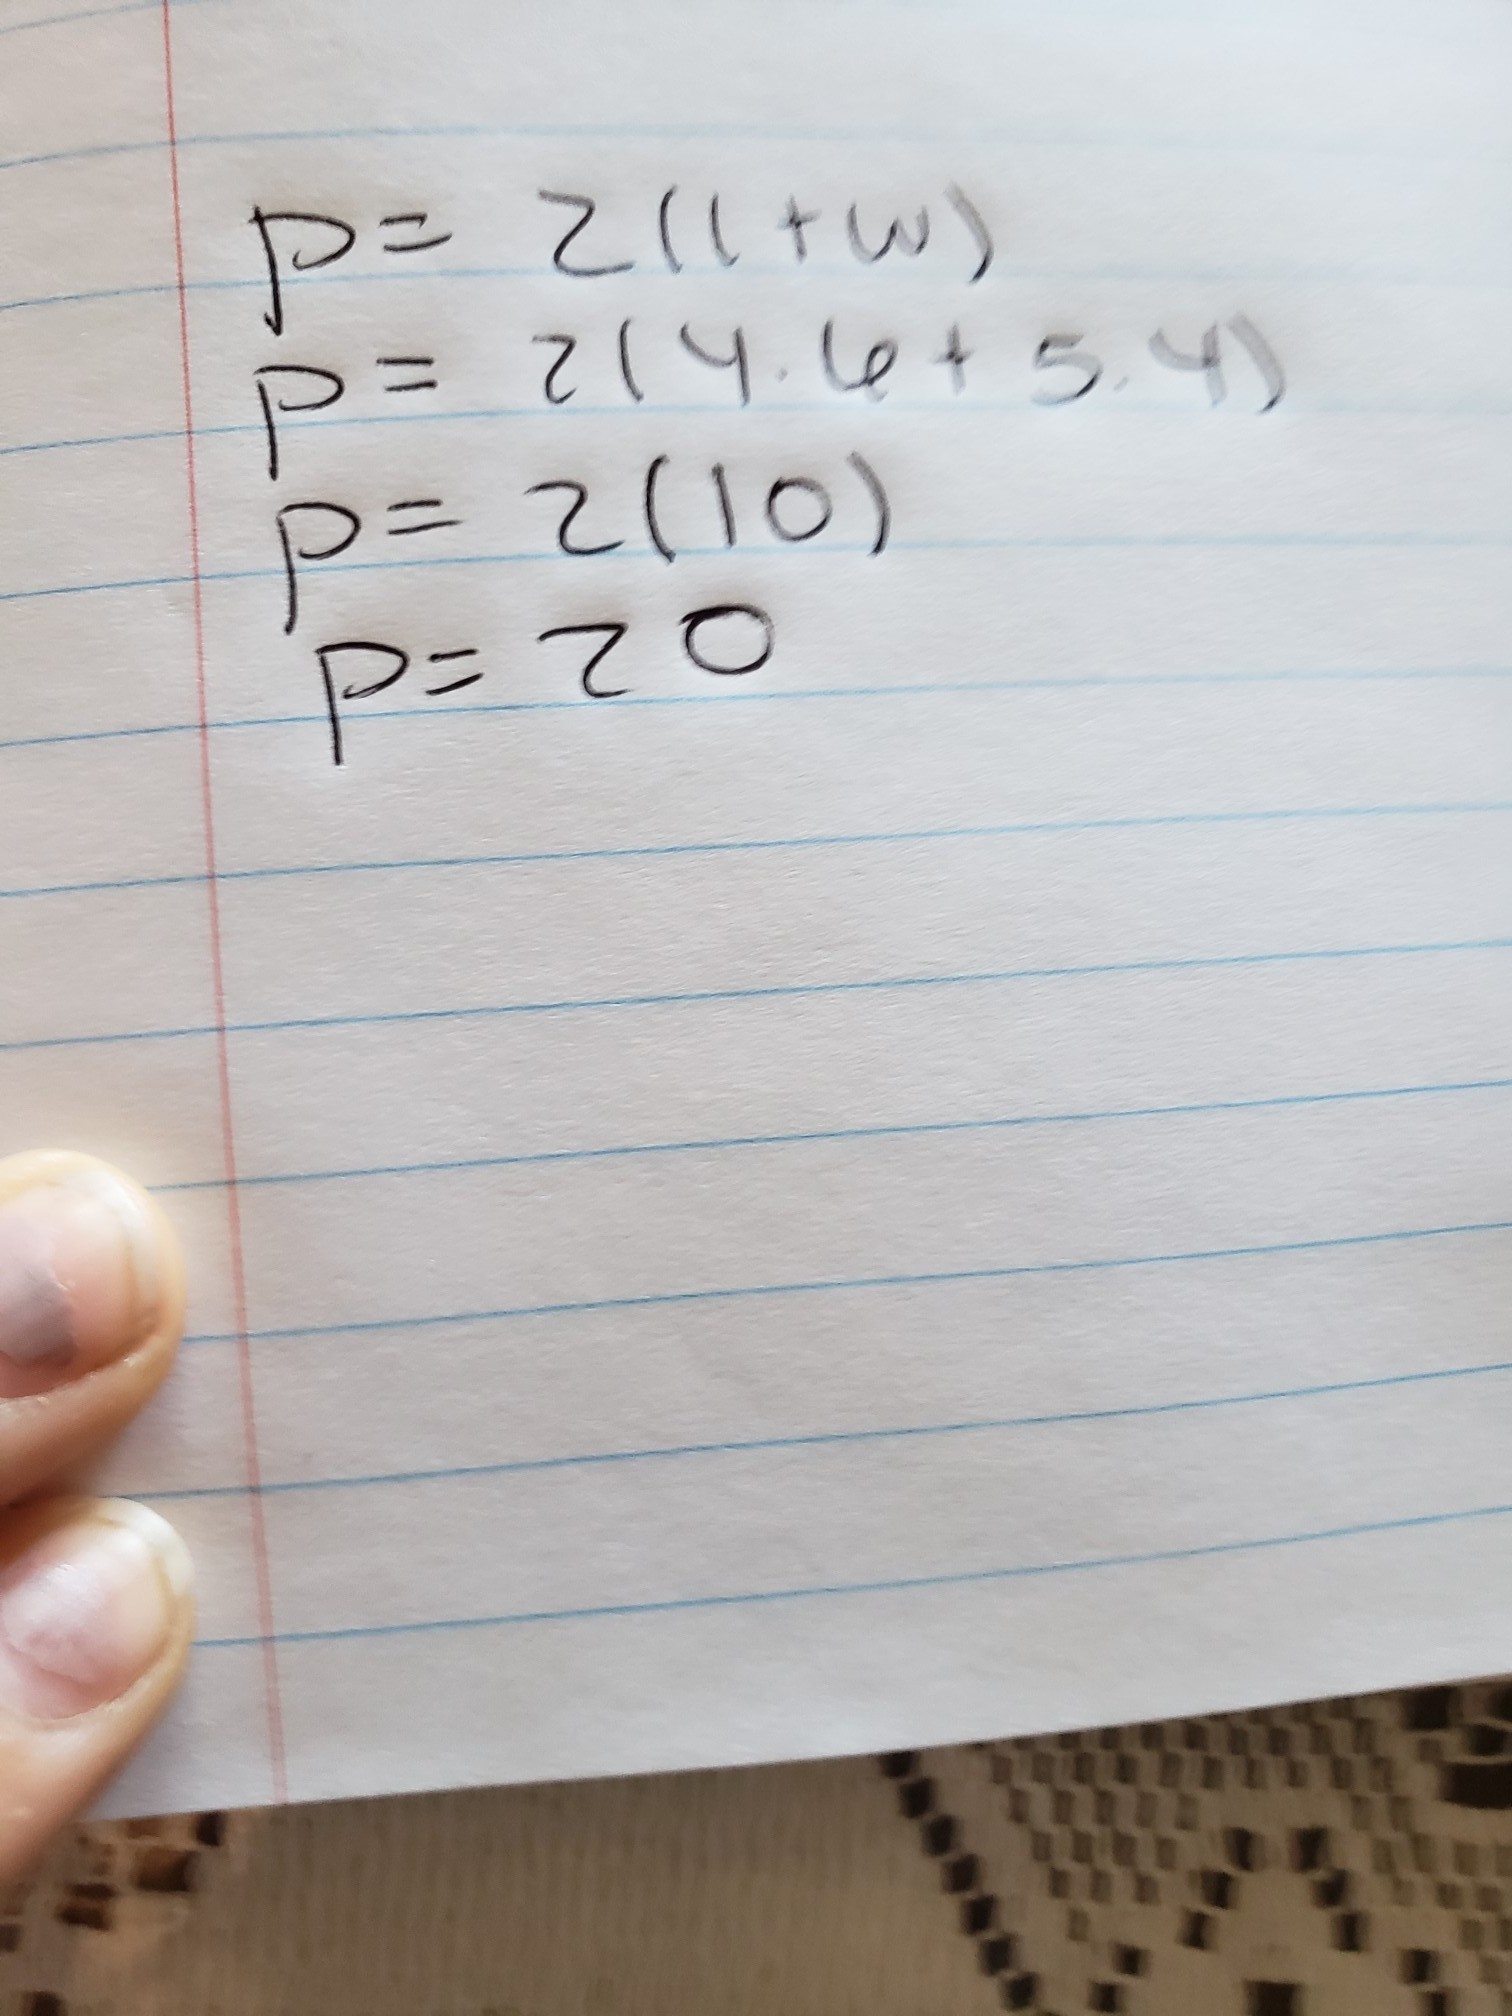 p= 2(l+w)
p= 2(4.6+5.4)
p= 2(10)
p= 20